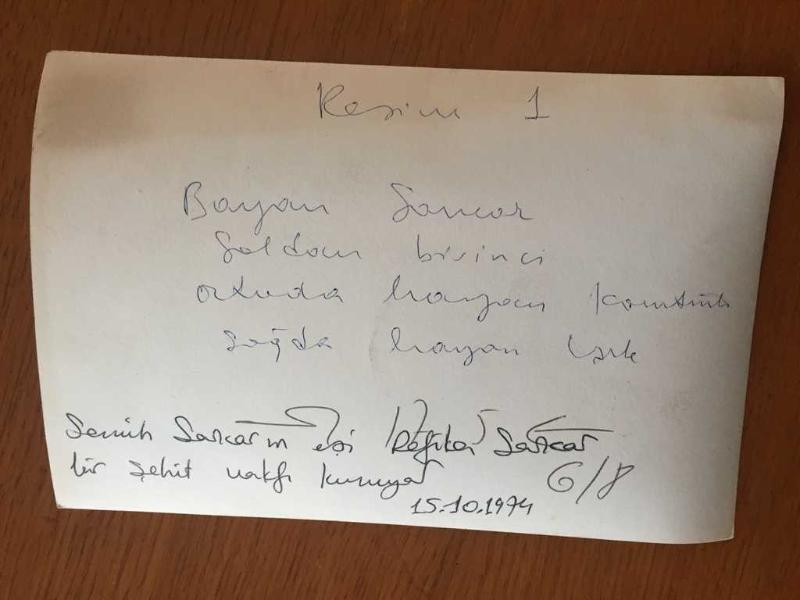 Resim 1
Bayan Sancar
Soldan birinci
Ortada bayan
Sağda bayan Işık
Semih Sancarın eşi Sancar
bir şehit vakfı kuruyor 6/8
15.10.1974